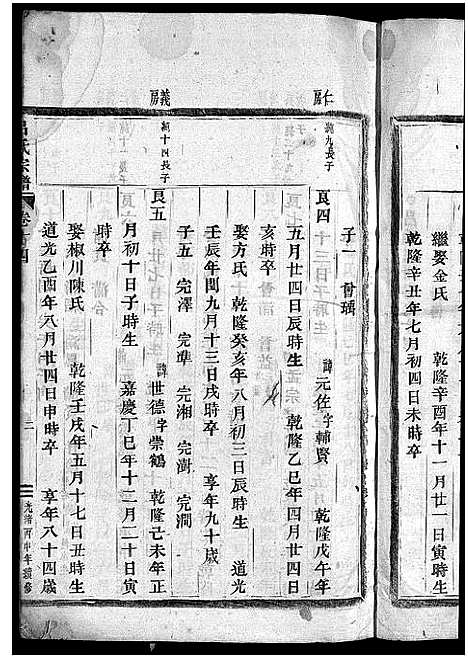 繼娶金氏 乾隆辛酉年十一月廿一日寅時生
乾隆辛丑年七月初四日未時卒
子一 會璊
仁房
純九長子
良四 諱元佐字輔賢 乾隆戊午年
五月廿四日辰時生 乾隆乙巳年四月廿四日
亥時卒
娶方氏 乾隆癸亥年八月初三日辰時生 道光
壬辰年閏九月十三日戌時卒 享年九十歲
子五 完澤 完準 完湘 完澍 完澗
義房
純十四長子
良五 諱世德字崇鶴 乾隆己未年正
月初十日子時生 嘉慶丁巳年十二月二十日寅
時卒
娶椒川陳氏 乾隆壬戌年五月十七日丑時生
道光乙酉年八月廿四日申時卒 享年八十四歲
氏宗譜 卷 四
光緒丙申年續修